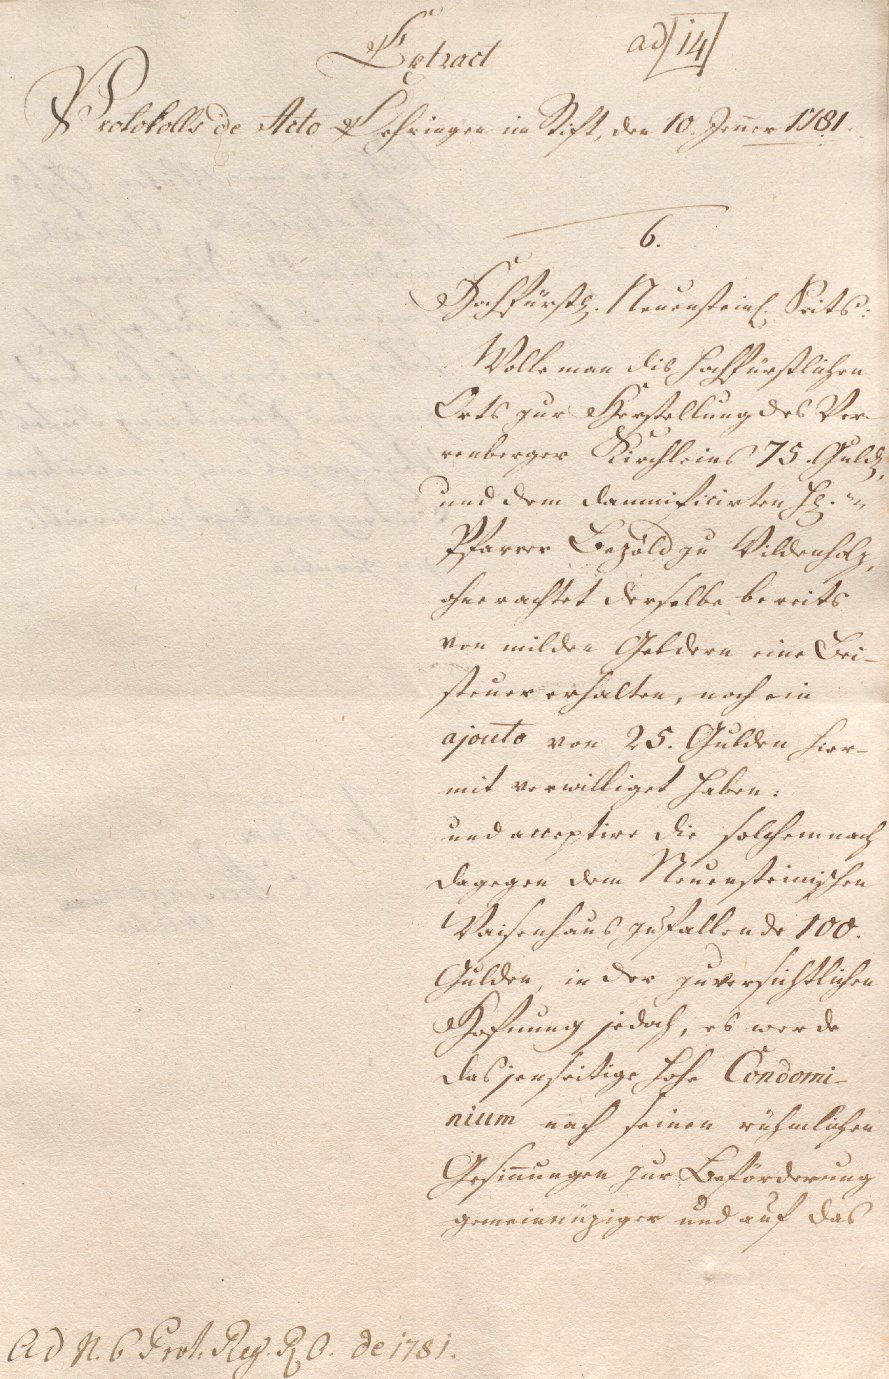 Extract
ad 14
Protokolls de Acto Oehringen im Stift, den 10. Jenner 1781.
6.
Hochfürstl. Neuensteinl. Seits:
Wolle man dis hochfürstlichen
Orts zur Herstellung des Ver-
renberger Kirchleins 75. Guld.,
und dem damnificirten
Pfarrer Bezold zu Wildenholz,
ohnerachtet derselbe bereits
von milden Geldern eine Bei-
steuer erhalten, noch ein
ajouto von 25. Gulden hier-
mit verwilliget haben:
und acceptire die solchemnach
dagegen dem Neuensteinischen
Waisenhaus zufallende 100.
Gulden, in der zuversichtlichen
Hofnung jedoch, es werde
das jenseitige hohe Condomi-
nium nach seinen rühmlichen
Gesinnungen zur Beförderung
gemeinnüziger und auf das
Ad N. 6 Prot. Reg. R. O. de 1781.